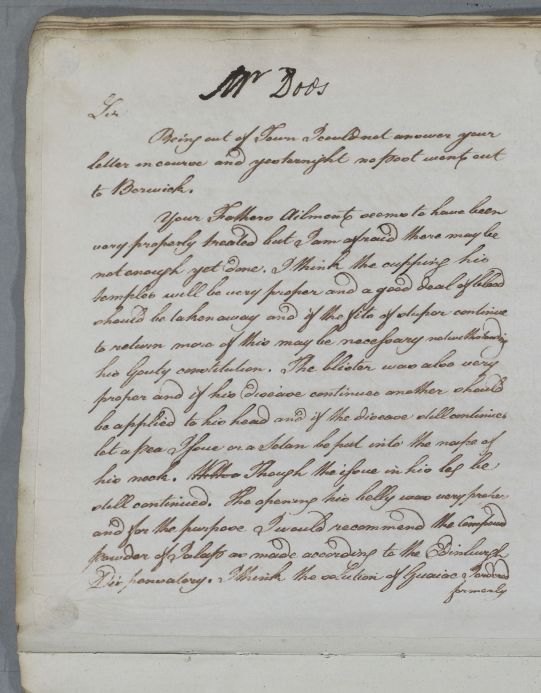 Mr Dods
Sir
Being out of Town I could not answer your
letter in course and yesternight no post went out
to Berwick.
Your Fathers Ailment seems to have been
very properly treated but I am afraid there may be
not enough yet done. I think the cupping his
temples will be very proper and a good deal of blood
should be taken away and if the fits of stupor continue
to return more of this may be necessary notwithstanding
his Gouty constitution. The blister was also very
proper and if his disease continues another should
be applied to his head and if the disease still continues
let a pea Issue or a Setan be put into the nape of
his neck. Though the issue in his leg be
still continued. The opening his belly was very proper
and for the purpose I would recommend the Compound
powder of Jalap as made according to the Edinburgh
Dispensatory. I think the solution of Guaiac I ordered
formerly